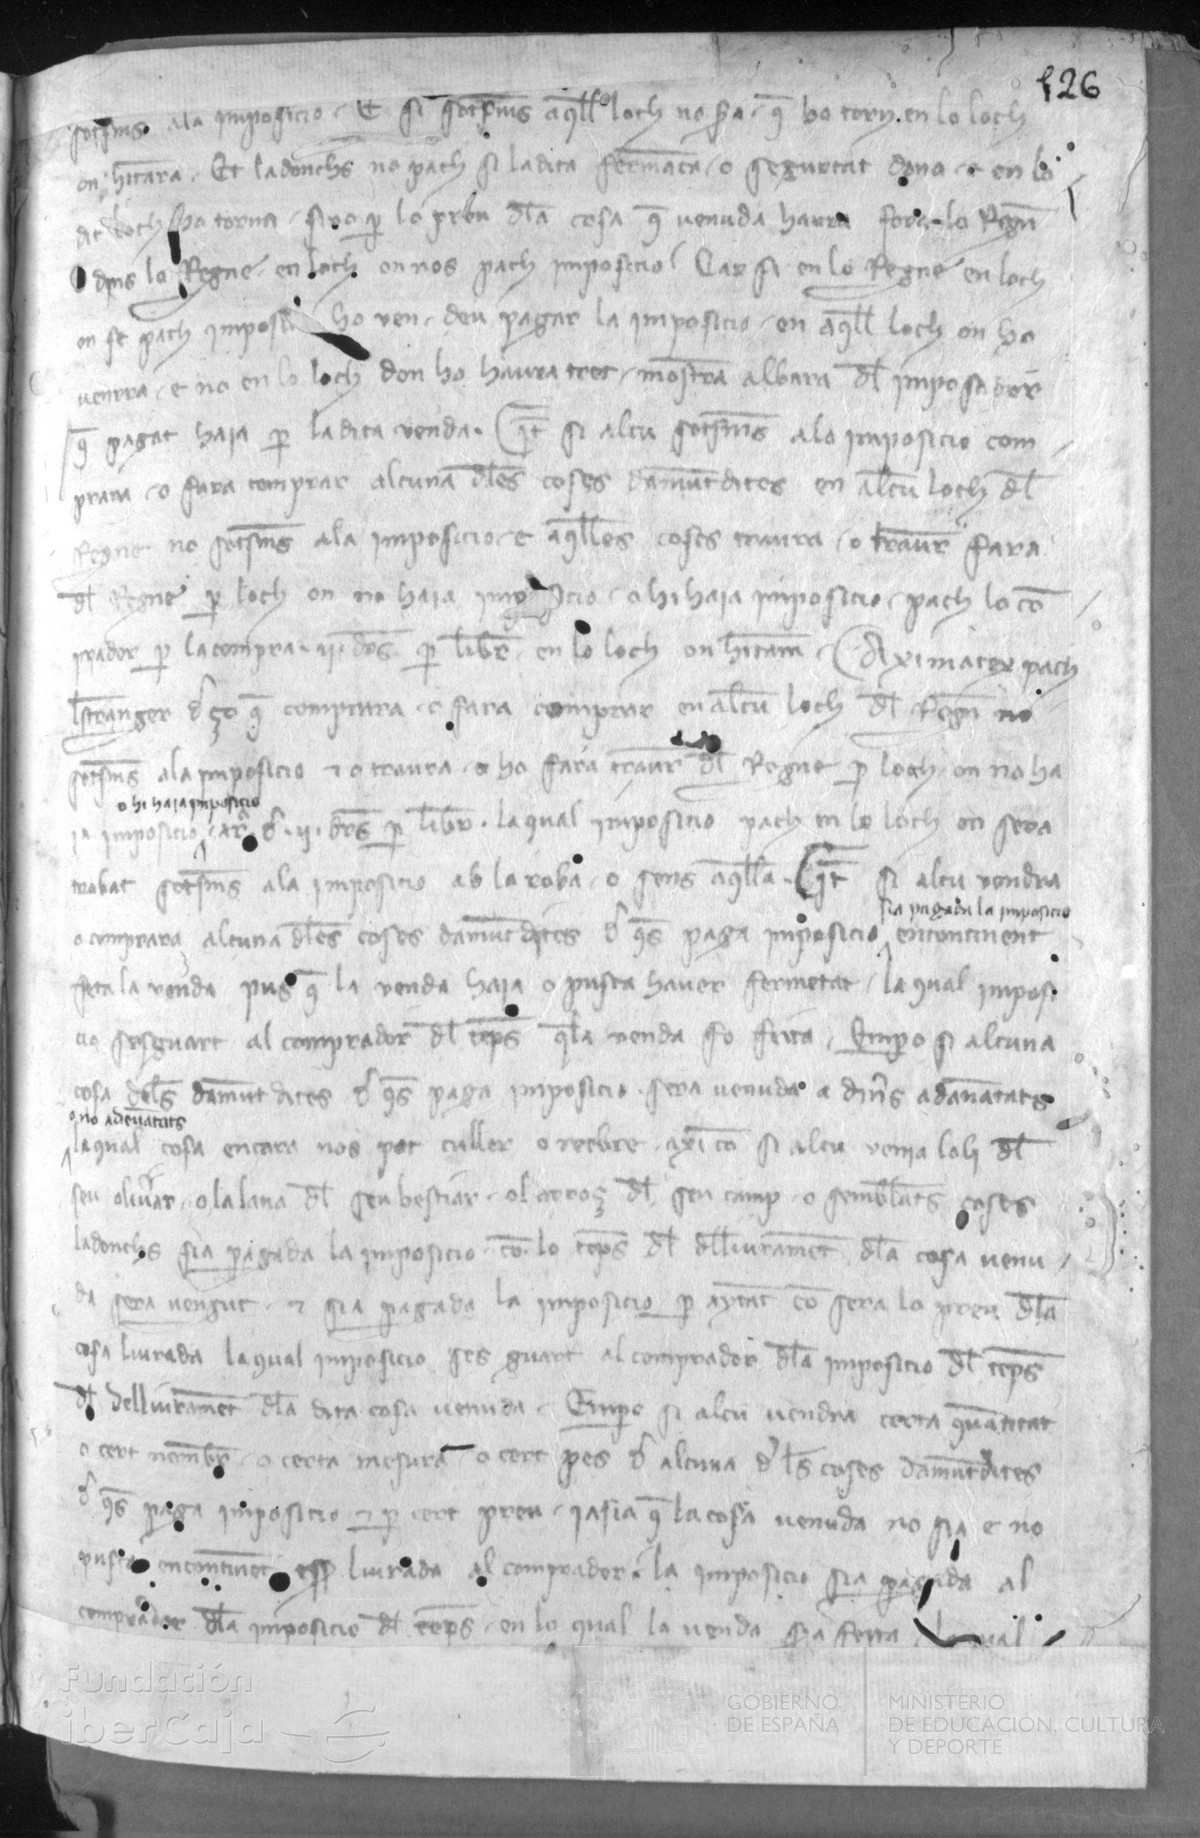 126
sotsmes a la imposicio. E si sotsmes aqll loch no sera q ho torn en lo loch
on hitara. Et ladonchs no pach si la dita fermaça o segurtat dona e en lo
dit loch ho torna sino p lo preu dla cosa q venuda haura fora lo Regñ
o dins lo Regne en loch on nos pach imposicio Car si en lo Regne en loch
on se pach imposi ho ven deu pagar la imposicio en aqll loch on ho
venra e no en lo loch don ho haura tret mostra albara dl imposador
q pagat haia p la dita venda. Itē si alcu sotsmes a la imposicio com
prara o fara comprar alcuna dles coses damūtdites en alcū loch dl
Regne no sotsmes a la imposicio e aqlles coses traura o traur fara
dl Regne p loch on no haia imp icio o hi haia imposicio pach lo cō
prador p la compra .ij. drs p libr en lo loch on hitara. Aximatex pach
lestranger d ço q comprara o fara comprar en alcū loch dl Regñ no
sotsmes a la imposicio e o traura o ho fara traur dl Regne p loch on no ha
o hi haia imposicio
ia imposicio .ij. drs p libr. la qual imposicio pach en lo loch on sera
trobat sotsmes a la imposicio ab la roba o sens aqlla. Itē si alcu vendra
sia pagada la imposicio
o comprara alcuna dles coses damūt dites d qs paga imposicio encontinent
feta la venda pus q la venda haia o pusca haver fermetat la qual imposi
cio sesguart al comprador dl tēps q la venda fo feita. Empo si alcuna
cosa dels damūt dites d qs paga imposicio sera venuda a dines adenātats
o no adenātats
la qual cosa encara nos pot cullir o rebre axi cō si alcu venia loli dl
seu olivar o la lana dl seu bestiar o larroç dl seu camp o semblāts coses
ladonchs sia pagada la imposicio cō lo tēps dl dlliuramēt dla cosa venu
da sera vengut e sia pagada la imposicio p aytāt cō sera lo preu dla
cosa liurada la qual imposicio ses guart al comprador dla imposicio dl tēps
dl delliuramēt dla dita cosa venuda. Empo si alcu vendra certa quātitat
o cert nombr o certa mesura o cert pes d alcuna d les coses damūtdites
d qs paga imposicio e p cert preu ia sia q la cosa venuda no sia e no
pusca encontinēt esser liurada al comprador. la imposicio sia pagada al
comprador dla imposicio dl tēps en lo qual la venda sera feita la qual
Fundación
iberCaja
GOBIERNO
DE ESPAÑA
MINISTERIO
DE EDUCACIÓN, CULTURA
Y DEPORTE